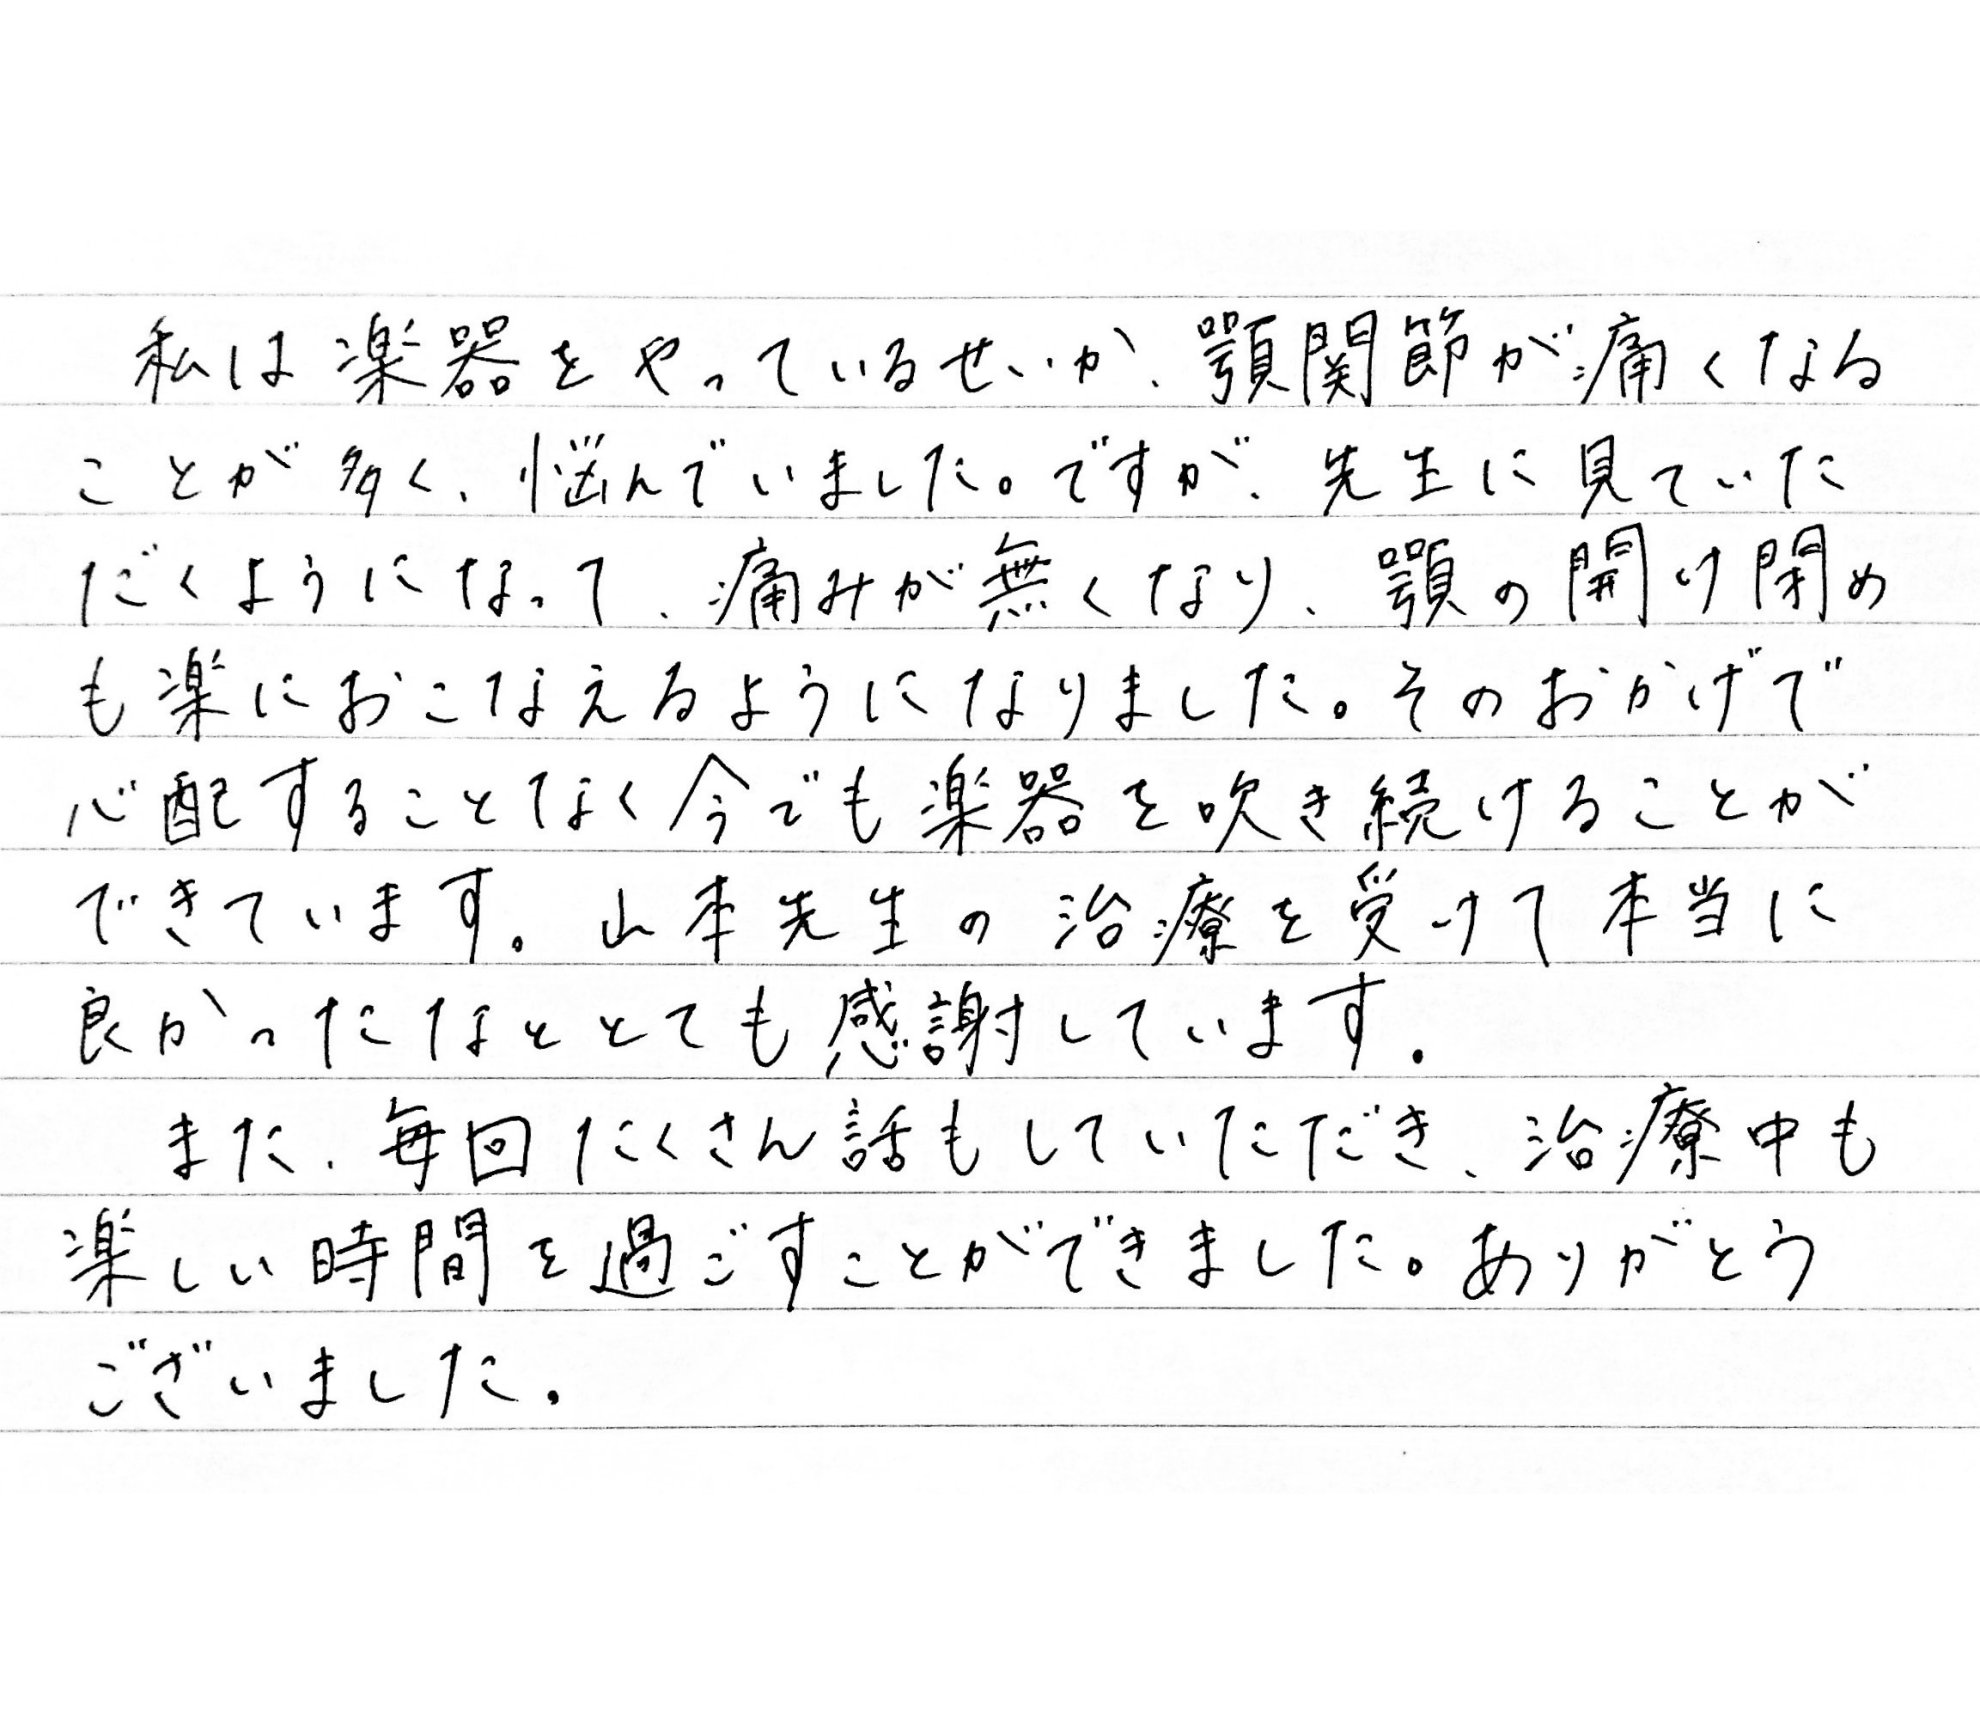 私は楽器をやっているせいか、顎関節が痛くなる
ことが多く、悩んでいました。ですが、先生に見ていた
だくようになって、痛みが無くなり、顎の開け閉め
も楽におこなえるようになりました。そのおかげで
心配することなく今でも楽器を吹き続けることが
できています。山本先生の治療を受けて本当に
良かったなととても感謝しています。
また、毎回たくさん話もしていただき、治療中も
楽しい時間を過ごすことができました。ありがとう
ございました。